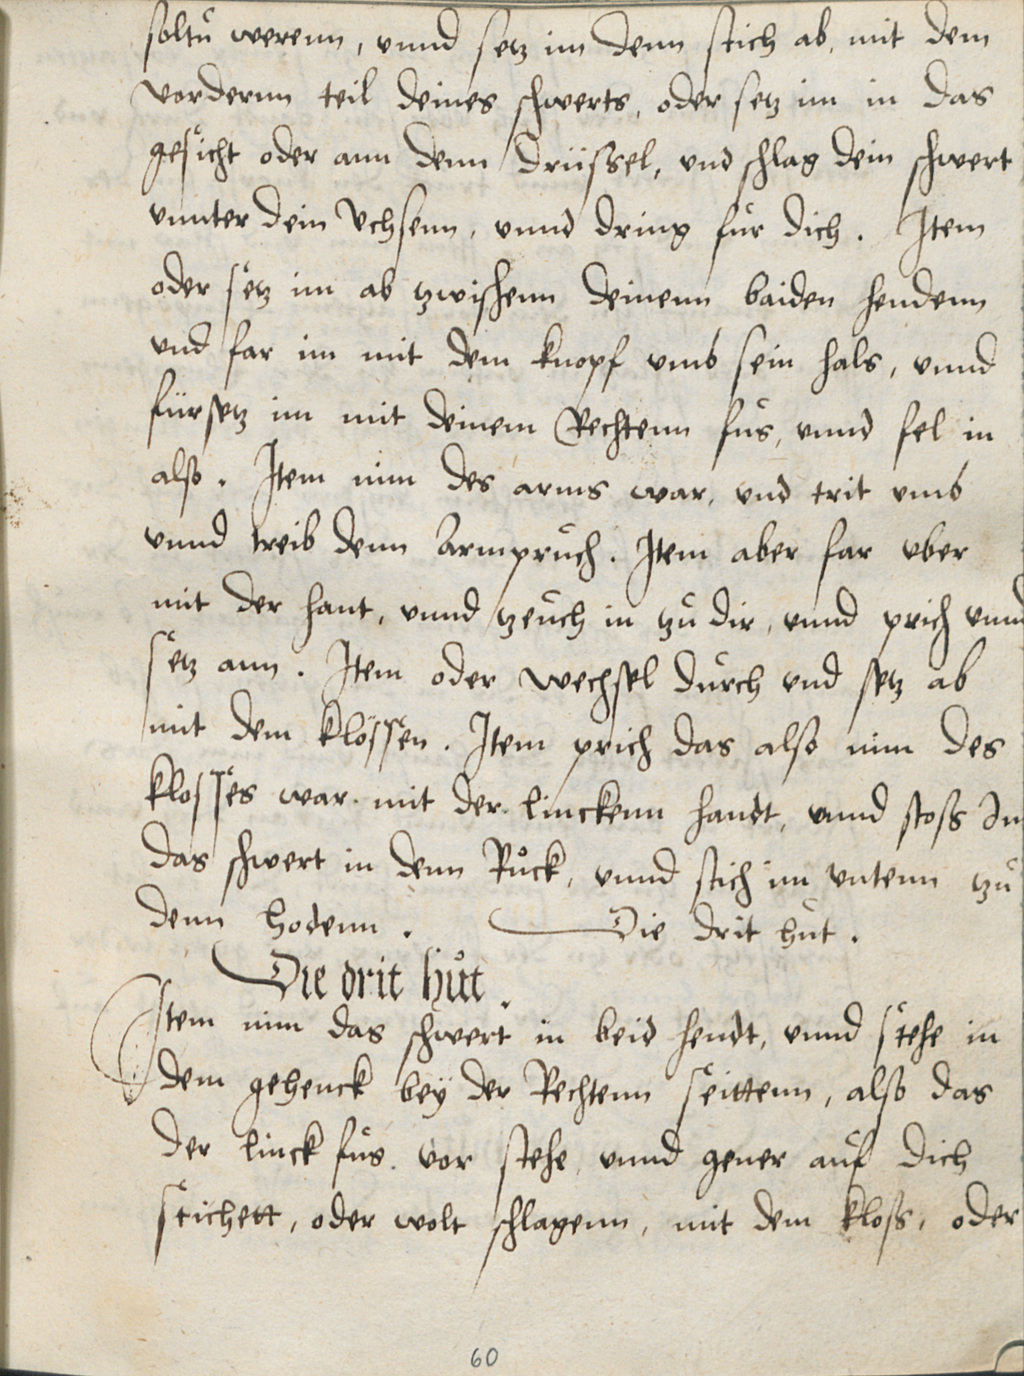 soltu werenn, vnnd setz im denn stich ab, mit dem
vordernn teil deines schwerts, oder setz im in das
gesicht oder ann denn Drüssel, vnd schlag dein schwert
vnnter dein Vchsenn, vnnd dring für dich. Item
oder setz im ab tzwischenn deinenn baiden hendenn
vnd far im mit dem knopf vmb sein hals, vnnd
fürsetz im mit deinem Rechtenn fus, vnnd fel in
also. Item nim des arms war, vnd trit vmb
vnnd treib denn Armpruch. Item aber far vber
mit der hant, vnnd tzeuch in tzu dir, vnnd prich vnnd
setz ann. Item oder wechsel durch vnd setz ab
mit dem klössen. Item prich das also nim des
klosses war mit der linckenn handt, vnnd stoss Im
das schwert in denn Růck, vnnd stich im vntenn tzu
denn hodenn. Die drit hut.
Die drit hůt.
Item nim das schwert in beid hendt, vnnd stehe in
dem gehenck beÿ der Rechtenn seittenn, also das
der linck fus vor stehe vnnd gener auf dich
stichett, oder wolt schlagenn, mit dem kloss, oder
60